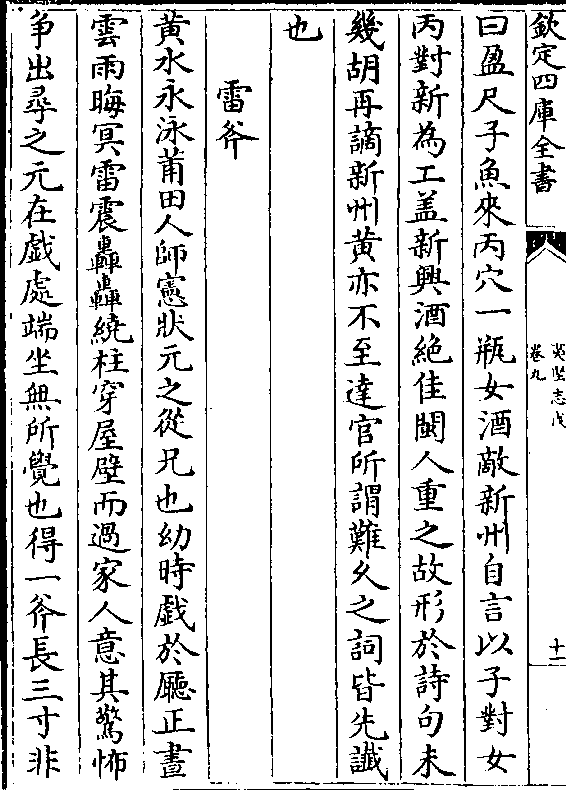 欽定四庫全書
夷堅志戊
卷九
十一
曰盈尺子魚來丙穴一瓶女酒敵新州自言以子對女
丙對新為工盖新興酒絶佳閩人重之故形於詩句未
幾胡再謫新州黄亦不至達官所謂難久之詞皆先讖
也
雷斧
黄水永泳莆田人師憲狀元之從兄也幼時戯於廳正晝
雲雨晦冥雷震轟轟繞柱穿屋壁而過家人意其驚怖
争出尋之元在戯處端坐無所覺也得一斧長三寸非